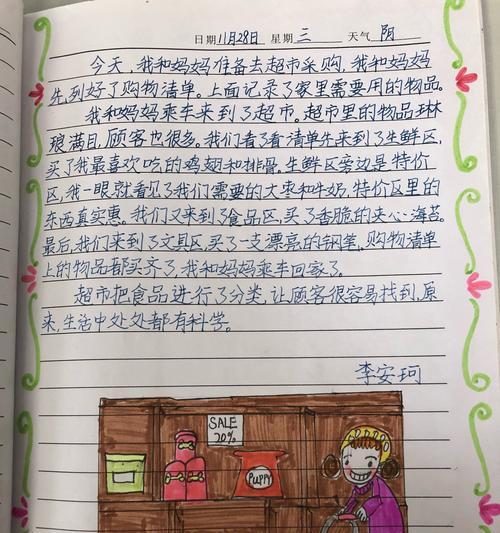 日期 11月28日 星期 三 天气 阴
今天，我和妈妈准备去超市采购，我和妈妈
先列好了购物清单。上面记录了家里需要用的物品。
我和妈妈乘车来到了超市。超市里的物品琳
琅满目，顾客也很多。我们看了看清单先来到了生鲜区，
买了我最喜欢吃的鸡翅和排骨。生鲜区旁边是特价
区，我一眼就看见了我们需要的大枣和牛奶，特价区里的
东西真实惠。我们又来到了食品区，买了香脆的夹心海苔。
最后，我们来到了文具区，买了一支漂亮的钢笔，购物清单
上的物品都买齐了，我和妈妈乘车回家了。
超市把食品进行了分类，让顾客很容易找到，原
来，生活中处处都有科学。
李安珂
SALE
20%
PUPPY